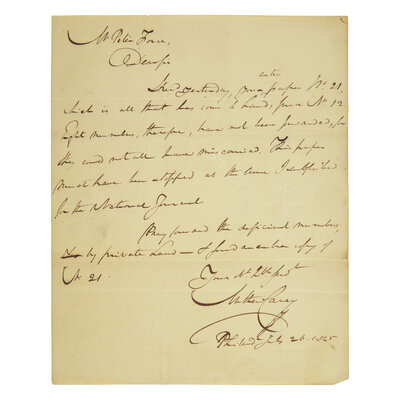 Mr Peter Force,
Dear Sir
extra
I had yesterday, paper No. 21,
which is all that has come to hand, since No 12
Eight numbers, therefore, have not been forwarded, for
they could not all have miscarried. This paper
must have been stopped at the time I subscribed
for the National Journal
Pray forward the deficient numbers,
by private hand — & send an extra copy of
No 21.
Your obt hble servt
Mathew Carey
Philad July 26. 1825